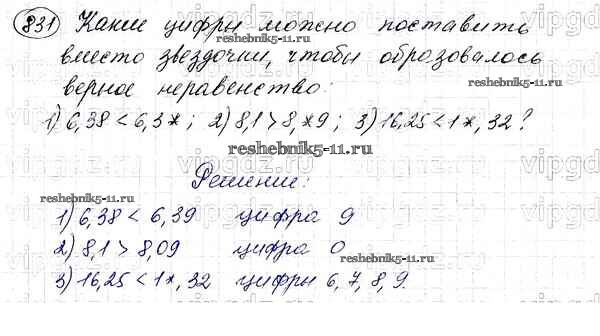 831 Какие цифры можно поставить
reshebnik5-11.ru
вместо звездочки, чтобы образовалось
reshebnik5-11.ru
верное неравенство:
1) 6,38 < 6,3*; 2) 8,1 > 8,*9; 3) 16,25 < 1*,32?
reshebnik5-11.ru
Решение:
reshebnik5-11.ru
1) 6,38 < 6,39 цифра 9
reshebnik5-11.ru
2) 8,1 > 8,09 цифра 0
3) 16,25 < 1*,32 цифры 6, 7, 8, 9.
reshebnik5-11.ru